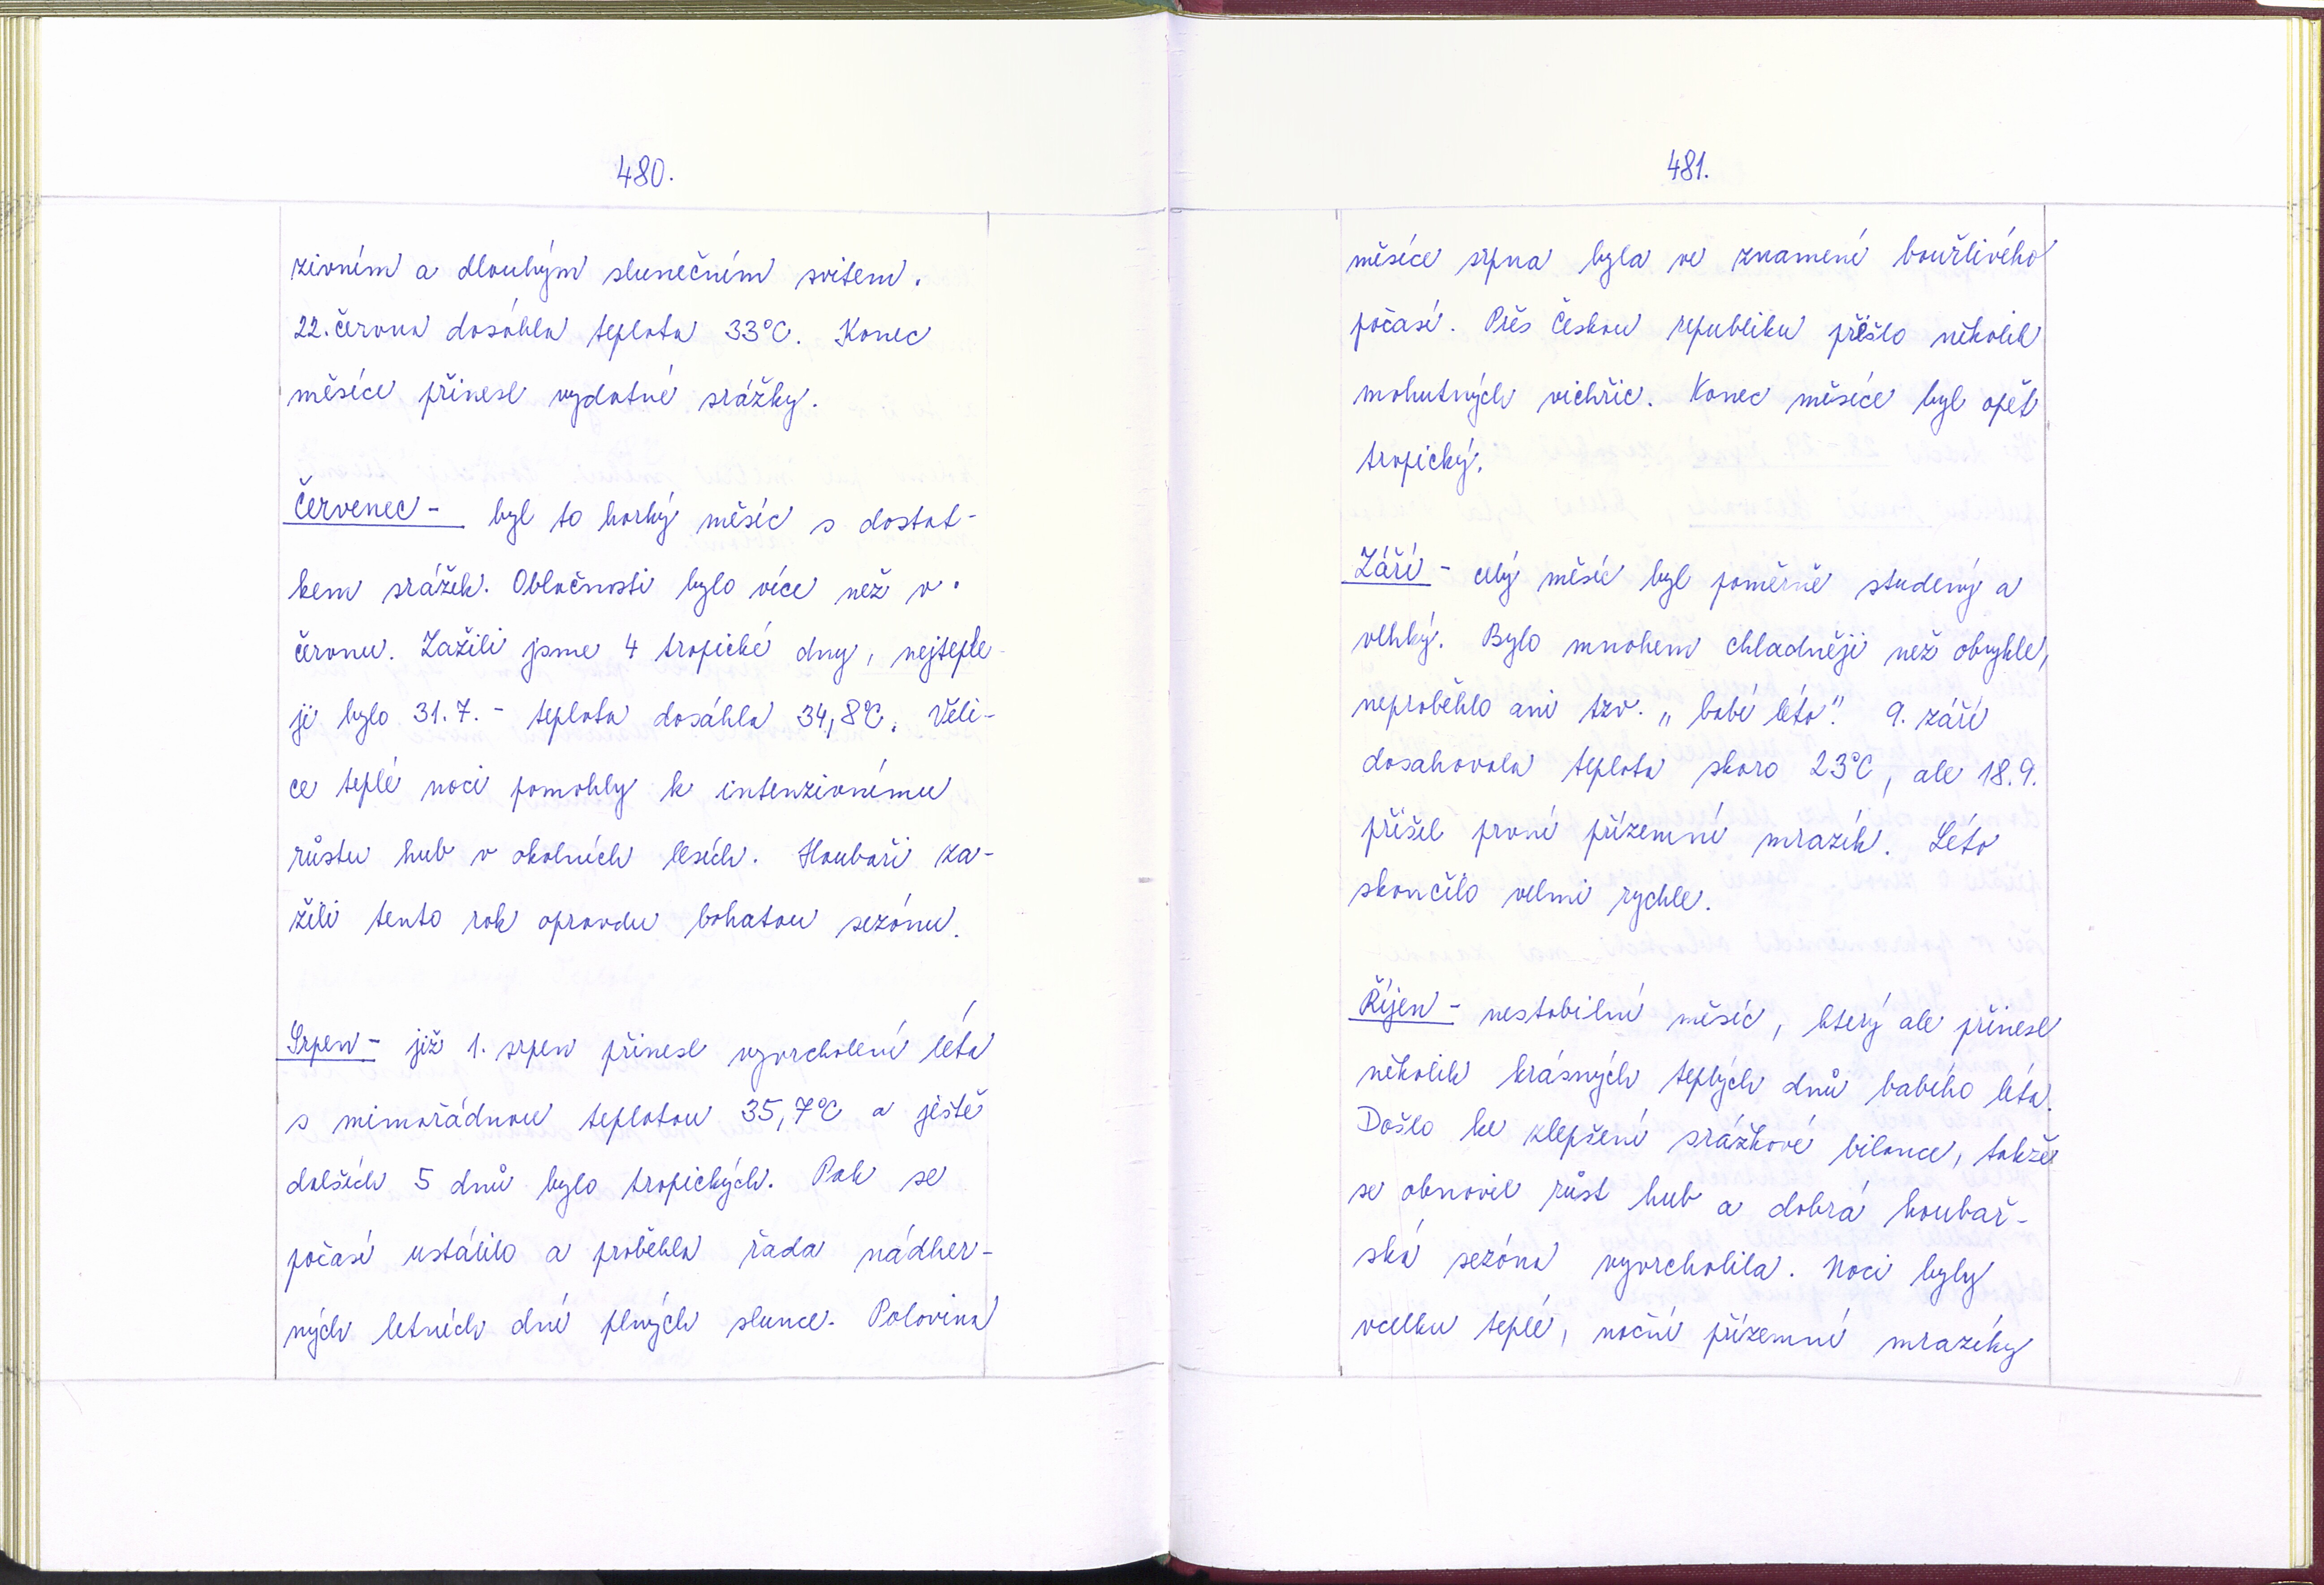 480.
zivním a dlouhým slunečním svitem.
22. června dosáhla teplota 33°C. Konec
měsíce přinesl vydatné srážky.
Červenec - byl to horký měsíc s dostat-
kem srážek. Oblačnosti bylo více než v
červnu. Zažili jsme 4 tropické dny, nejteple-
ji bylo 31.7. - teplota dosáhla 34,8°C. Veli-
ce teplé noci pomohly k intenzivnímu
růstu hub v okolních lesích. Houbaři za-
žili tento rok opravdu bohatou sezónu.
Srpen - již 1. srpen přinesl vyvrcholení léta
s mimořádnou teplotou 35,7°C a ještě
dalších 5 dnů bylo tropických. Pak se
počasí ustálilo a proběhla řada nádher-
ných letních dní plných slunce. Polovina
481.
měsíce srpna byla ve znamení bouřlivého
počasí. Přes Českou republiku přešlo několik
mohutných vichřic. Konec měsíce byl opět
tropický.
Září - celý měsíc byl poměrně studený a
vlhký. Bylo mnohem chladněji než obvykle,
neproběhlo ani tzv. „babí léto". 9. září
dosahovala teplota skoro 23°C, ale 18.9.
přišel první přízemní mrazík. Léto
skončilo velmi rychle.
Říjen - nestabilní měsíc, který ale přinesl
několik krásných teplých dnů babího léta.
Došlo ke zlepšení srážkové bilance, takže
se obnovil růst hub a dobrá houbař-
ská sezóna vyvrcholila. Noci byly
vcelku teplé, noční přízemní mrazíky